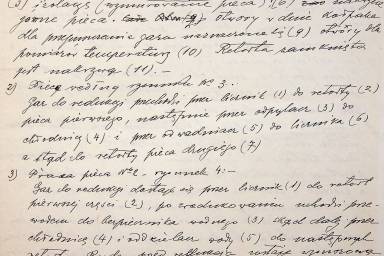 (5) izolacja (wymurowanie pieca) (6)
jowne pieca. otwory w dnie kołpaka
dla przepuszczania gazu naznaczone są (9) otwór dla
pomiaru temperatury (10) Retorta zamknięta
jest nakrywą (11). –
2) Piec według rysunku № 3.
Gaz do redukcji przechodzi przez licznik (1) do retorty (2)
pieca pierwszego, następnie przez odpylacz (3) do
chłodnicy (4) i przez odwadniacz (5) do licznika (6)
a stąd do retorty pieca drugiego (7)
3) Praca pieca № 2. rysunek 4:–
Gaz do redukcji dostaje się przez licznik (1) do retort
pierwszej części (2), po zredukowaniu uchodzi prze-
wodem do bezpiecznika wodnego (3) skąd dalej przez
chłodnicę (4) i oddzielacz wody (5) do następnych
retort.